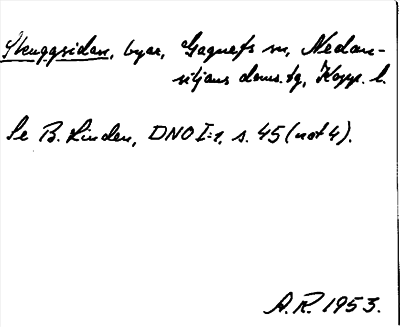 Skuggsidan, byar, Gagnefs sn, Nedan-
siljans doms.tg, Kopp. l.
Se B. Linden, DNO I:1, s. 45 (not 4).
A.R. 1953.